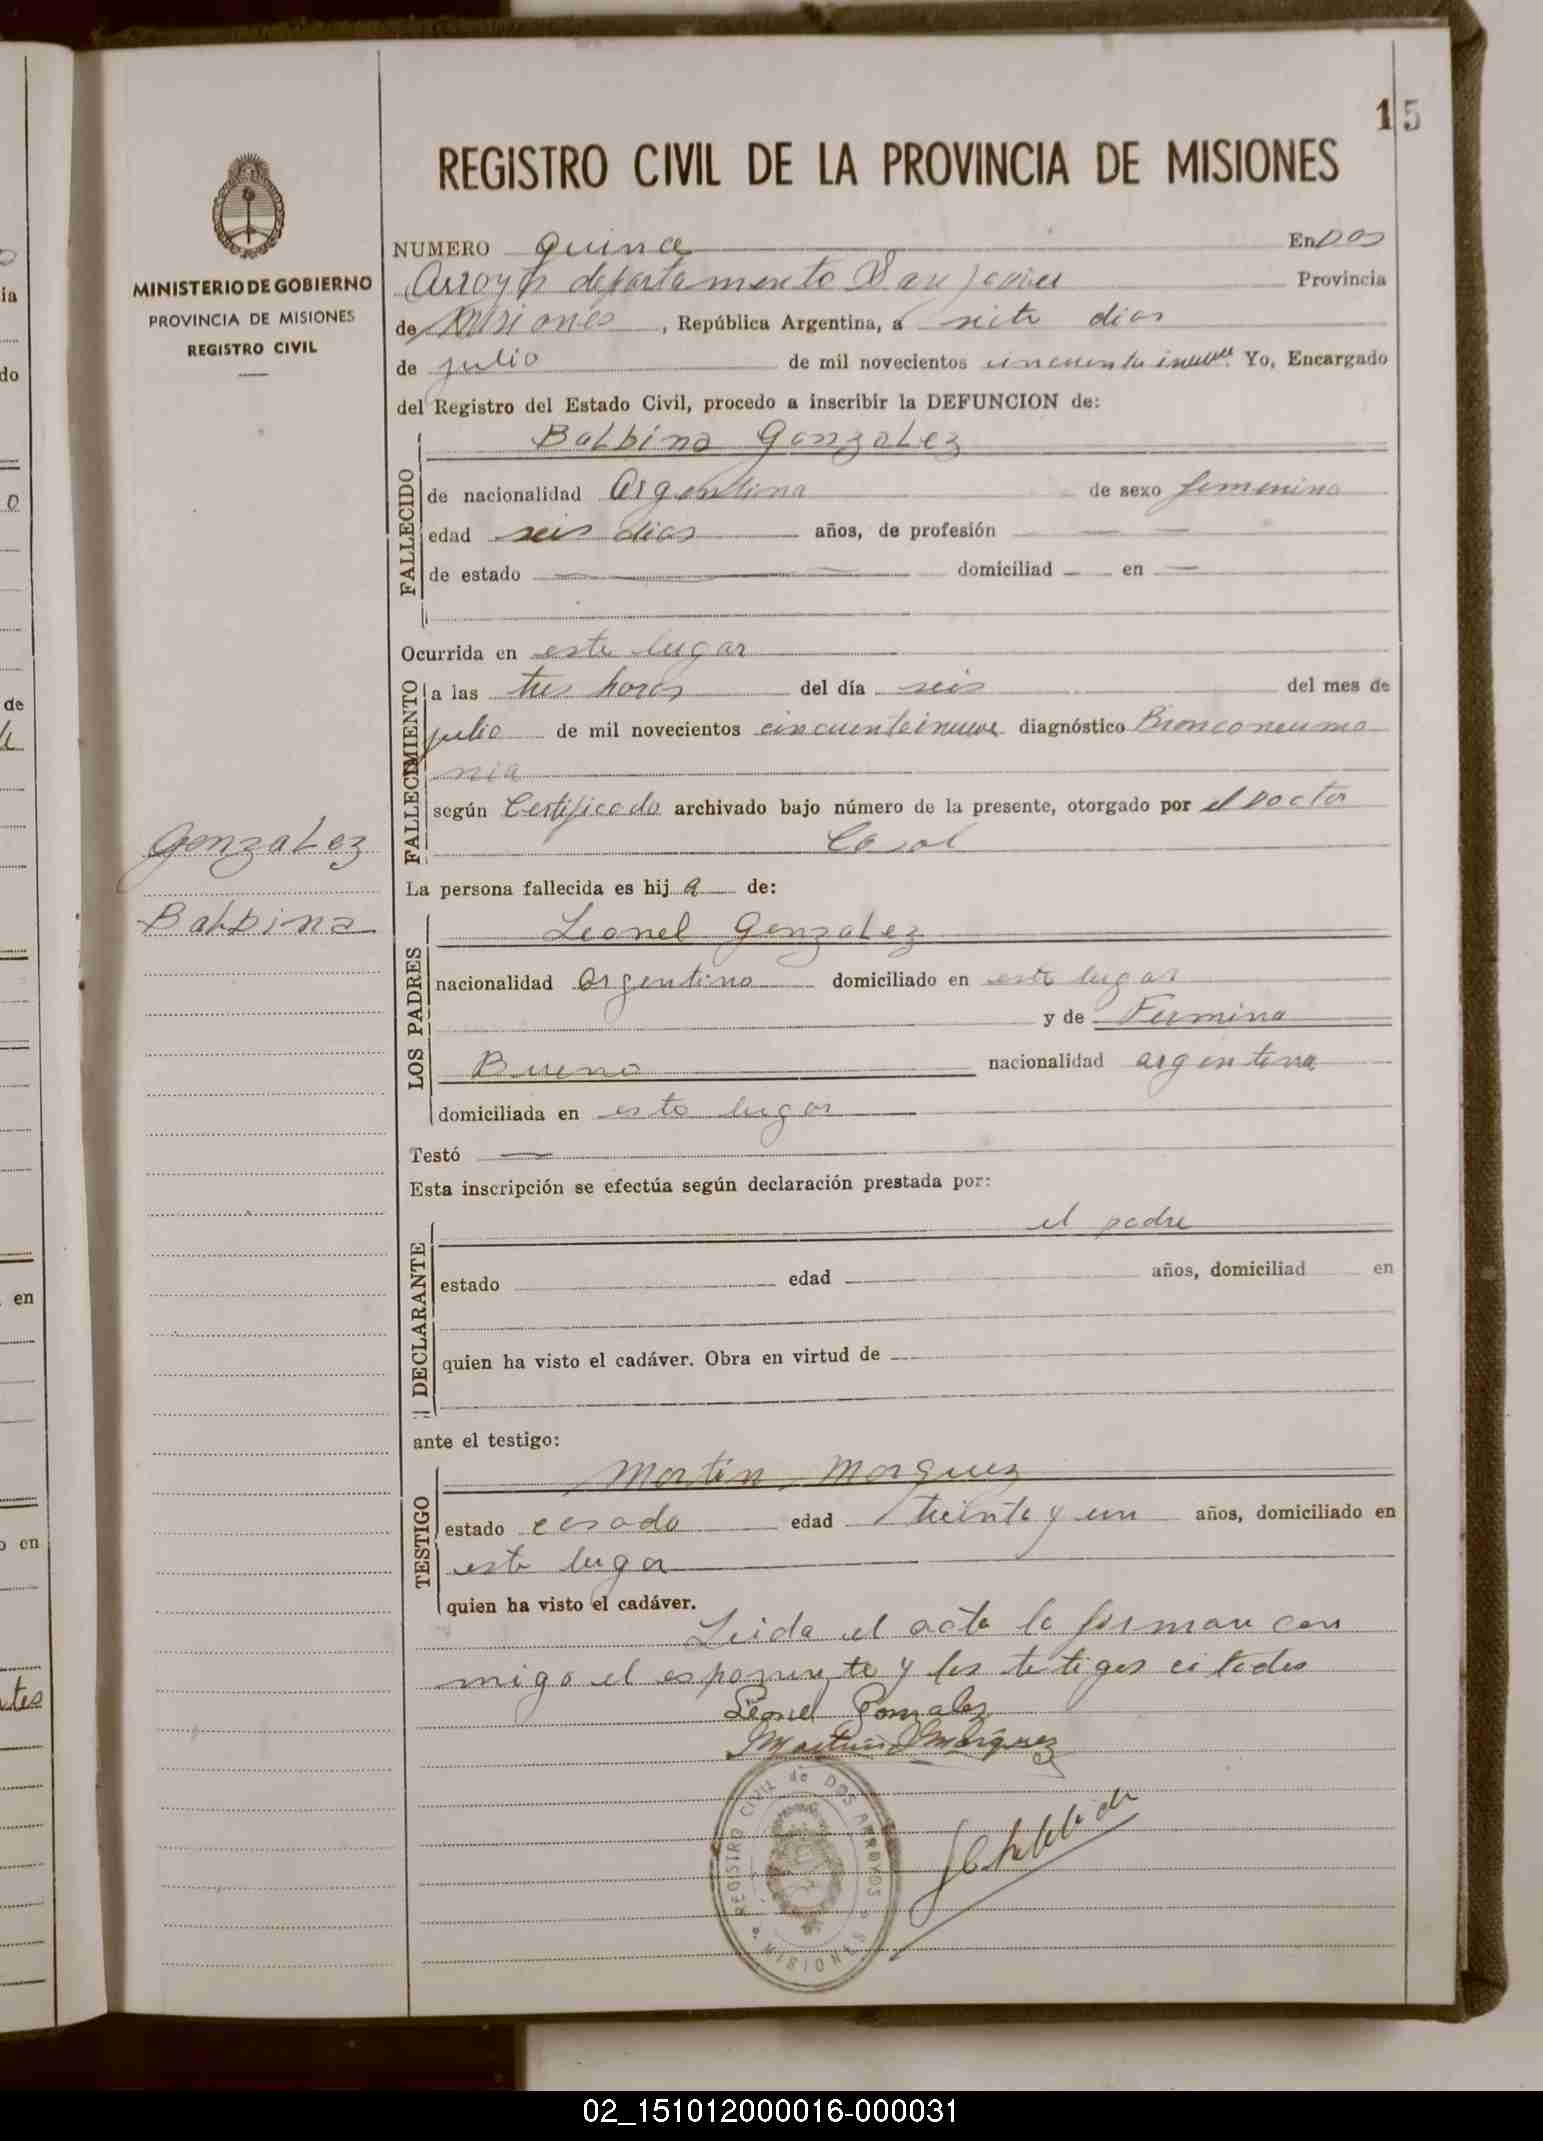 15
REGISTRO CIVIL DE LA PROVINCIA DE MISIONES
MINISTERIO DE GOBIERNO
PROVINCIA DE MISIONES
REGISTRO CIVIL
NUMERO quince En Dos
Arroyos departamento San Javier Provincia
de Misiones, República Argentina, a siete dias
de julio de mil novecientos cincuentainueve. Yo, Encargado
del Registro del Estado Civil, procedo a inscribir la DEFUNCION de:
FALLECIDO
Balbina Gonzalez
de nacionalidad Argentina de sexo femenino
edad seis dias años, de profesión —
de estado — domiciliad — en —
Ocurrida en este lugar
FALLECIMIENTO
a las tres horas del día seis del mes de
julio de mil novecientos cincuentainueve diagnóstico Bronconeumo
nia
según Certificado archivado bajo número de la presente, otorgado por el Doctor
Casal
La persona fallecida es hija de:
Gonzalez
Balbina
LOS PADRES
Leonel Gonzalez
nacionalidad Argentino domiciliado en este lugar
y de Fermina
Bueno nacionalidad argentina
domiciliada en este lugar
Testó —
Esta inscripción se efectúa según declaración prestada por:
DECLARANTE
el padre
estado edad años, domiciliad en
quien ha visto el cadáver. Obra en virtud de
ante el testigo:
TESTIGO
Martin Marquez
estado casado edad treinta y un años, domiciliado en
este lugar
quien ha visto el cadáver.
Leida el acta la firman con
migo el esponente y los tetigos citados
Leonel Gonzalez
Martin Marquez
REGISTRO CIVIL de DOS ARROYOS
MISIONES
02_151012000016-000031